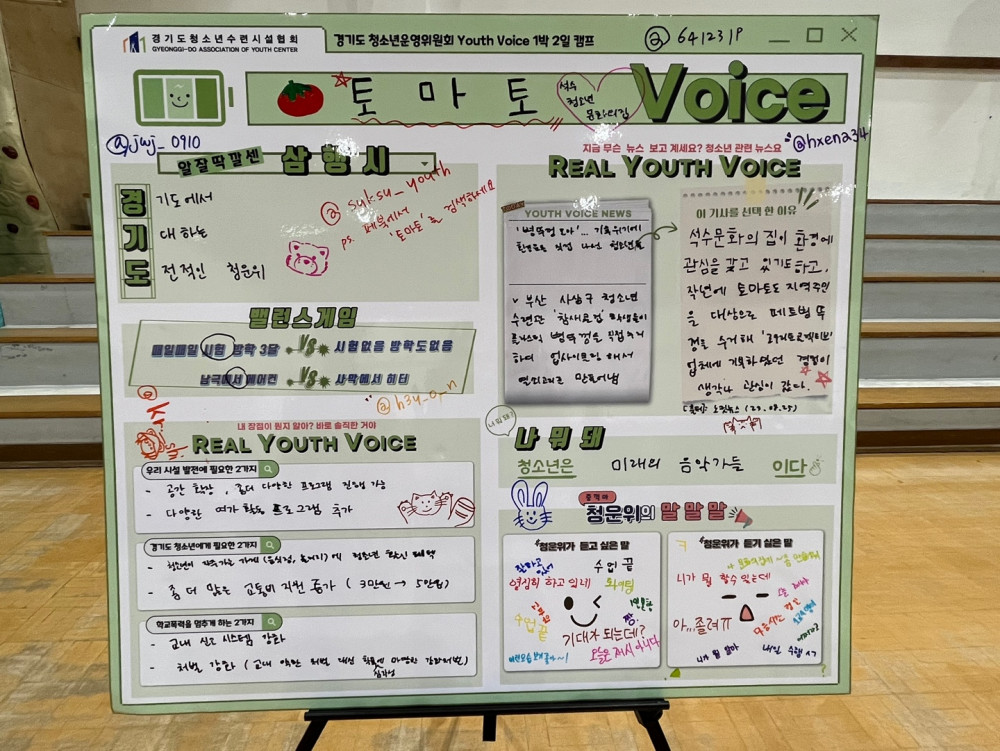 경기도청소년수련시설협회
GYEONGGI-DO ASSOCIATION OF YOUTH CENTER
경기도 청소년운영위원회 Youth Voice 1박 2일 캠프
@ 641231P
토마토 Voice
석수
청소년
문화의집
@jwj_0910
@hxena34
알잘딱깔센 삼행시
경 기도에서
기 대하는
도 전적인 청운위
@ suksu_youth
ps. 페북에서
'토마토'를 검색하세요
밸런스게임
매일매일 시험 방학 3달 VS 시험없음 방학도없음
남극에서 에어컨 VS 사막에서 히터
@h3y_o_n
내 장점이 뭔지 알아? 바로 솔직한 거야
REAL YOUTH VOICE
우리 시설 발전에 필요한 2가지
- 공간 확장, 좀더 다양한 프로그램 진행 가능
- 다양한 여가 활동 프로그램 추가
경기도 청소년에게 필요한 2가지
- 청소년이 자주가는 가게 (음식점, 놀이터)에 청소년 할인 혜택
- 좀 더 많은 교통비 지원 증가 (3만원 → 5만원)
학교폭력을 멈추게 하는 2가지
- 교내 신고 시스템 강화
- 처벌 강화 (교내 약한 처벌 대신
지금 무슨 뉴스 보고 계세요? 청소년 관련 뉴스요
REAL YOUTH VOICE
YOUTH VOICE NEWS
'병뚜껑 모아'... 기후위기에
환경보호 직접 나선 청소년들
v 부산 사상구 청소년
수련관 '참새클럽'
플라스틱 병뚜껑을 직접 수거
하여 업사이클링 해서
열쇠고리로 만들어냄
이 기사를 선택 한 이유
석수문화의 집이 환경에
관심을 갖고 있기도 하고,
작년에 토마토도 지역주민
을 대상으로 페트병 뚜
껑을 수거해
업체에 기부하였던 경험이
생각나 관심이 갔다.
나 뭐 돼?
나 뭐 돼
청소년은 미래의 음악가들 이다
중꺾마
청운위의 말말말
청운위가 듣고 싶은 말
잘하고 있어
수업 끝
열심히 하고 있네
수업 끝
짱
기대가 되는데?
오늘은 제시 아니다
청운위가 듣기 싫은 말
니가 뭘 할수 있는데
아...졸려ㅠ
니가 뭘 알아
내일 수행 ㅅㄱ